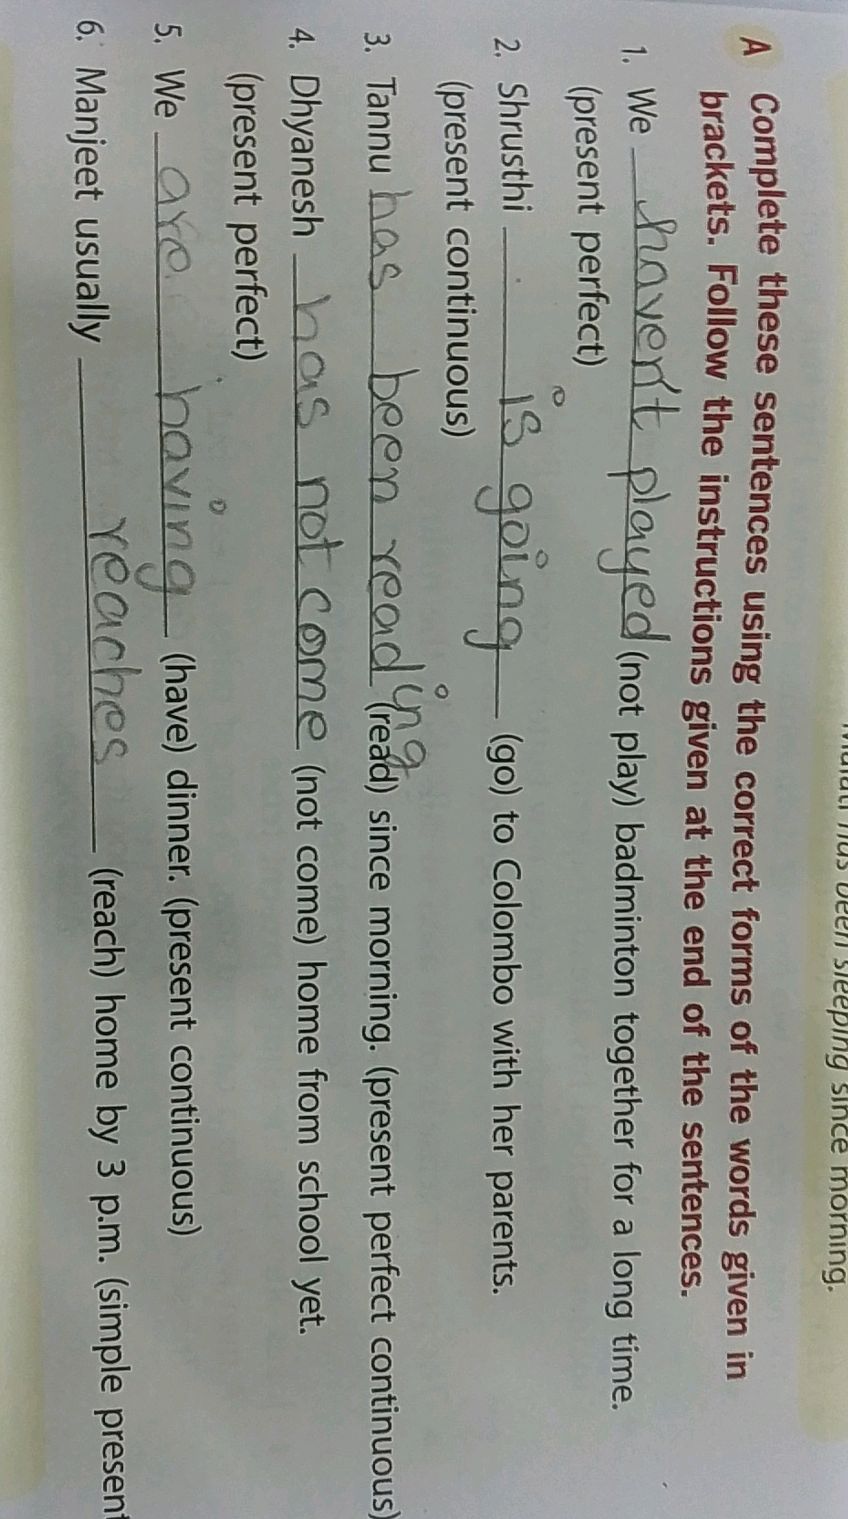 been sleeping since morning.
A Complete these sentences using the correct forms of the words given in
brackets. Follow the instructions given at the end of the sentences.
1. We haven't played (not play) badminton together for a long time.
(present perfect)
2. Shrusthi is going (go) to Colombo with her parents.
(present continuous)
3. Tannu has been reading (read) since morning. (present perfect continuous)
4. Dhyanesh has not come (not come) home from school yet.
(present perfect)
5. We are having (have) dinner. (present continuous)
6. Manjeet usually reaches (reach) home by 3 p.m. (simple present